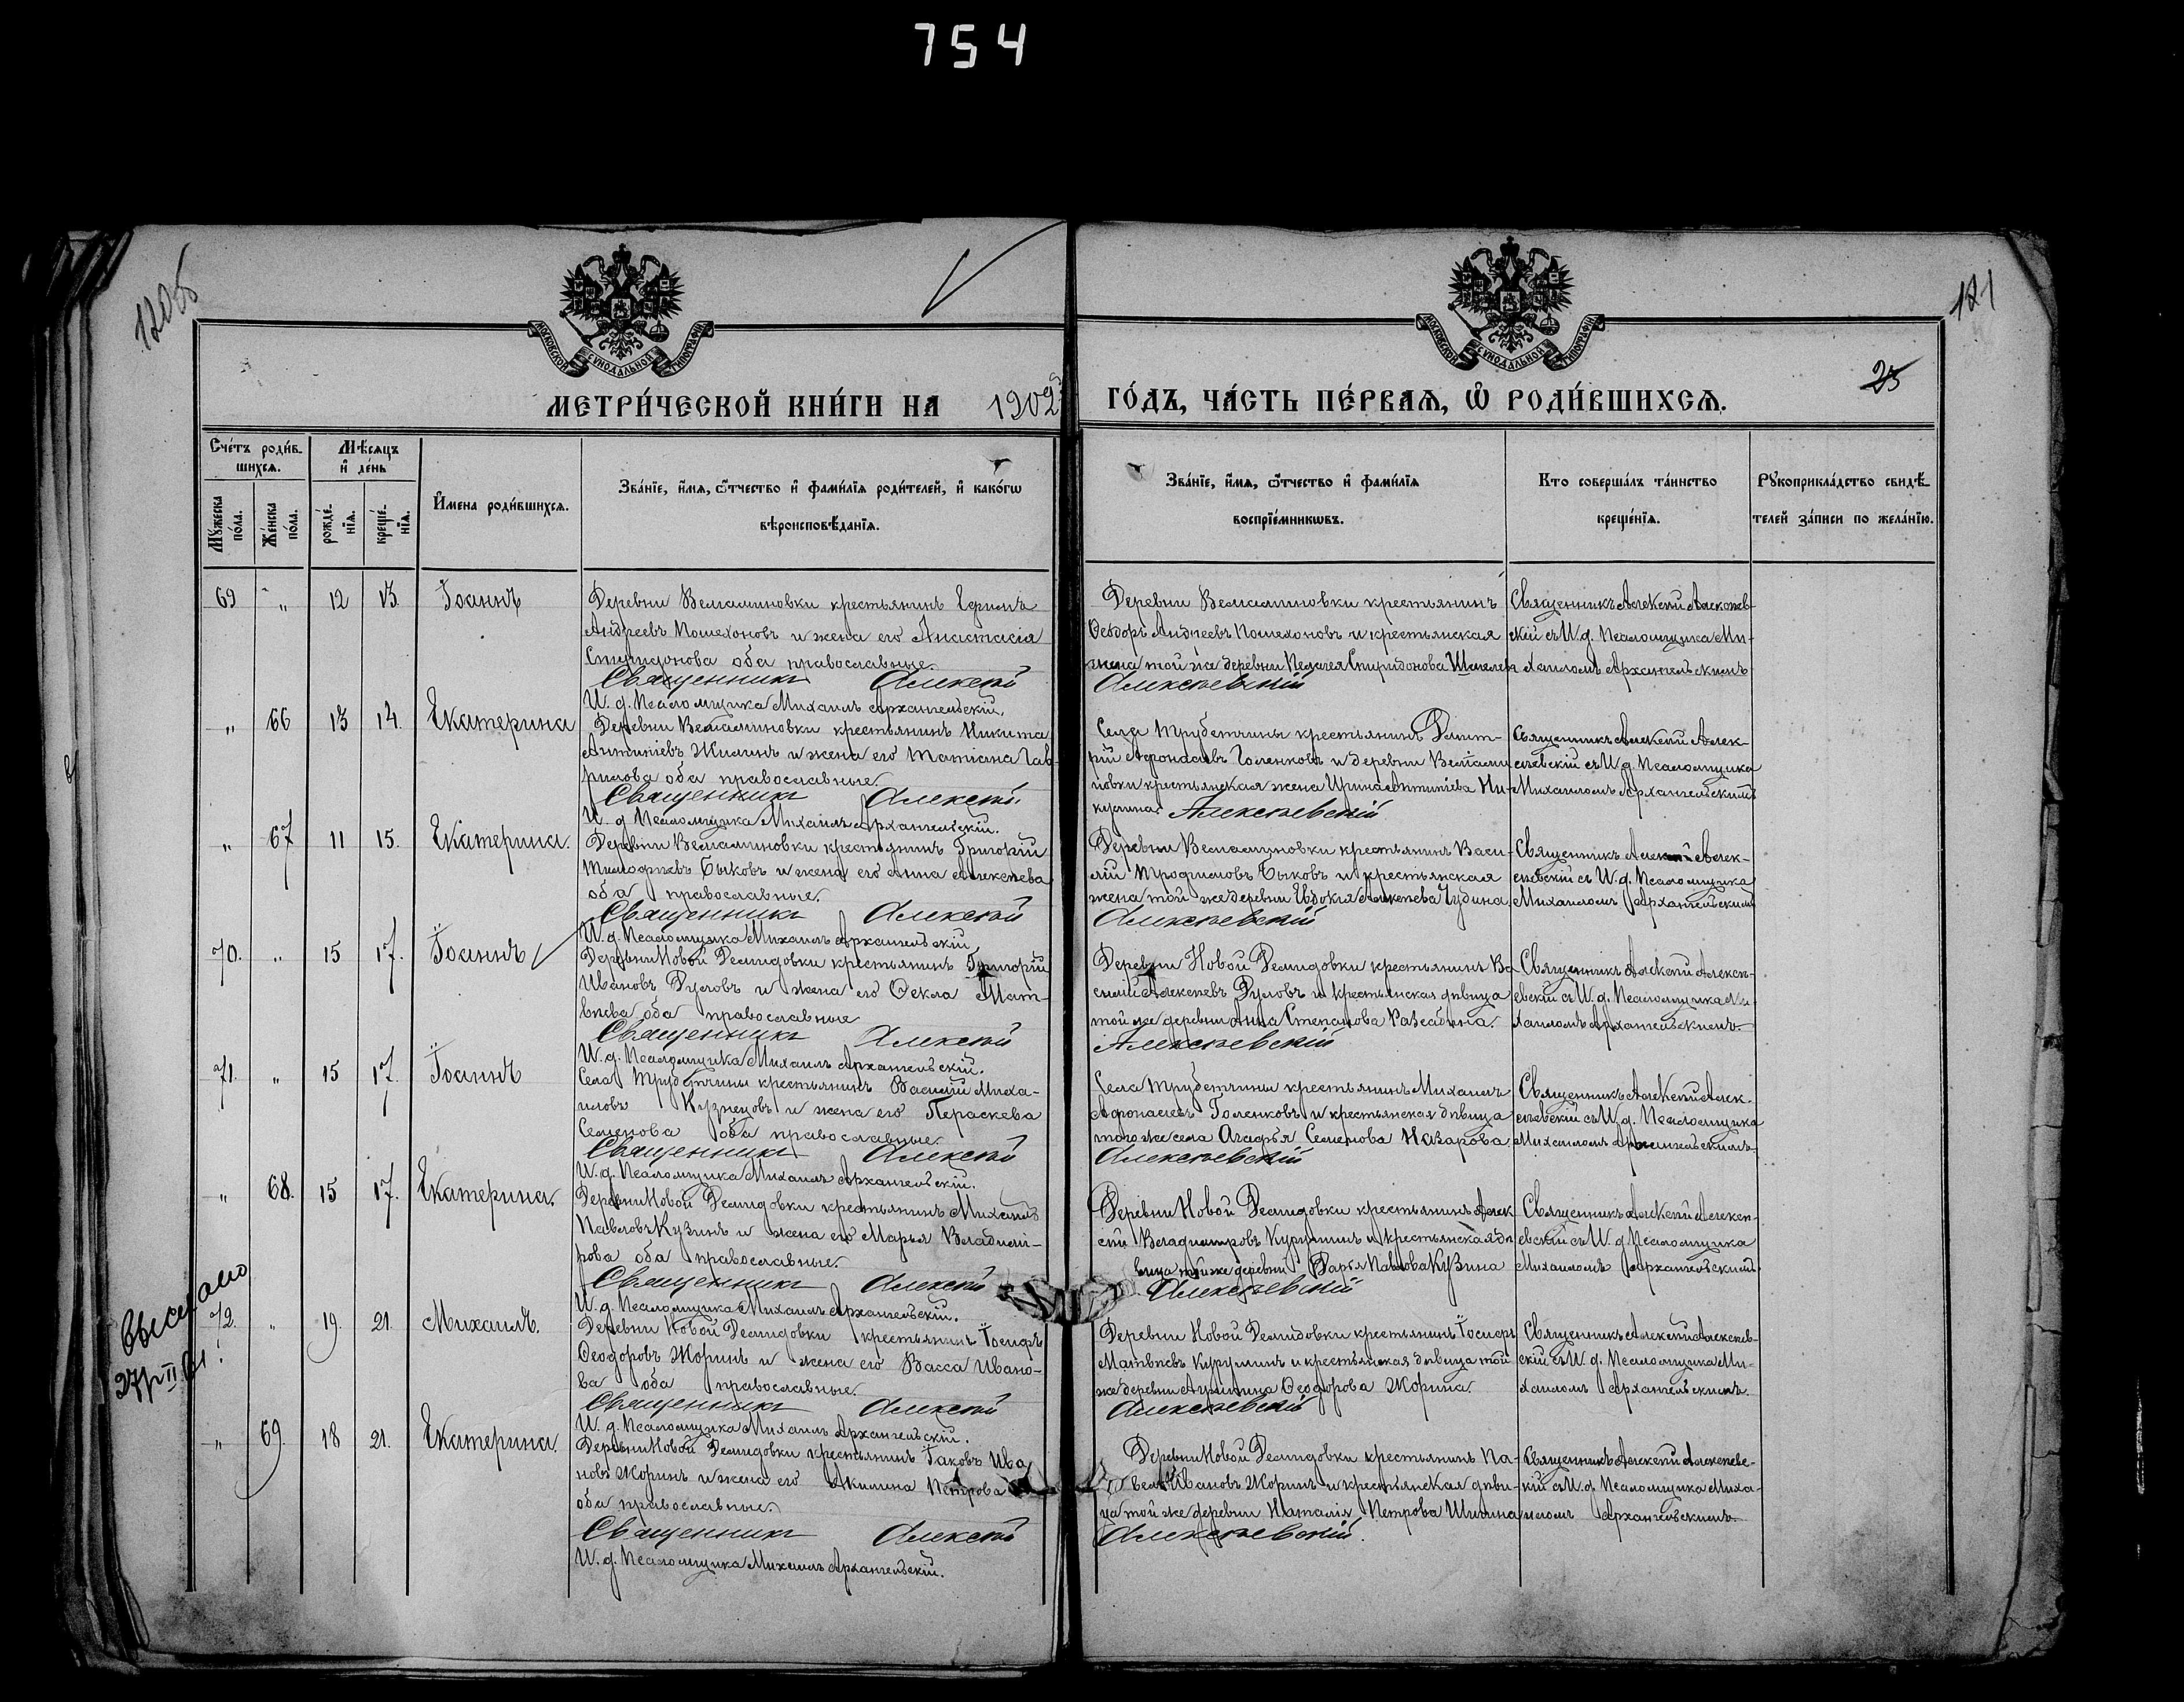 754
120об
121
25
МОСКОВСКОЙ СѴНОДАЛЬНОЙ ТИПОГРАФІИ
МОСКОВСКОЙ СѴНОДАЛЬНОЙ ТИПОГРАФІИ
МЕТРИ́ЧЕСКОЙ КНИ́ГИ НА 1902
ГО́ДЪ, ЧА́СТЬ ПЕ́РВАЯ, Ѿ РОДИ́ВШИХСЯ.
Сче́тъ роди́в-
шихся.
Мꙋ́жеска
по́ла.
Же́нска
по́ла.
Мѣ́сяцъ
и҆ де́нь
рожде́-
нїя.
креще́-
нїя.
И҆мена роди́вшихся.
Зва́нїе, и҆́мя, ѻ҆́тчество и҆ фами́лїя роди́телей, и҆ како́гѡ
вѣроисповѣ́данїя.
Зва́нїе, и҆́мя, ѻ҆́тчество и҆ фами́лїя
воспрїе́мникѡвъ.
Кто соверша́лъ та́инство
креще́нїя.
Рꙋкоприкла́дство свидѣ́-
телей за́писи по жела́нїю.
69 " 12 13. Іоаннъ
Деревни Вельяминовки крестьянинъ
Андреевъ Пошехоновъ и жена его Анастасія
Спиридонова оба православные.
Священникъ Алексій
И. д. Псаломщика Михаилъ Архангельскій.
Деревни Вельяминовки крестьянинъ
Ѳеодоръ Андреевъ Пошехоновъ и крестьянская
жена той же деревни Пелагея Спиридонова
Алексѣевскій
Священникъ Алексій Алексѣев-
скій съ И. д. Псаломщика Ми-
хаиломъ Архангельскимъ
" 66 13 14. Екатерина
Деревни Вельяминовки крестьянинъ Никита
Антипіевъ Жилинъ и жена его Татіана Гав-
рилова оба православные.
Священникъ Алексій.
И. д. Псаломщика Михаилъ Архангельскій.
Села Трубетчины крестьянинъ Димит-
рій Афонасьевъ Голенковъ и деревни Вельями-
новки крестьянская жена Ирина Антипіева Ни-
кулина. Алексѣевскій
Священникъ Алексій Алек-
сѣевскій съ И. д. Псаломщика
Михаиломъ Архангельскимъ
" 67 11 15. Екатерина.
Деревни Вельяминовки крестьянинъ Григорій
Тимофеевъ Быковъ и жена его Анна Алексѣева
оба православные.
Священникъ Алексій
И. д. Псаломщика Михаилъ Архангельскій
Деревни Вельяминовки крестьянинъ Васи-
лій Трофимовъ Быковъ и крестьянская
жена той же деревни Евдокія Алексѣева Чудина
Алексѣевскій
Священникъ Алексій Алек-
сѣевскій съ И. д. Псаломщика
Михаиломъ Архангельскимъ
70. " 15 17. Іоаннъ
Деревни Новой Демидовки крестьянинъ Григорій
Ивановъ Руловъ и жена его Ѳекла Мат-
вѣева оба православные
Священникъ Алексій
И. д. Псаломщика Михаилъ Архангельскій.
Деревни Новой Демидовки крестьянинъ Ва-
силій Алексѣевъ Руловъ и крестьянская дѣвица
той же деревни Анна Степанова
Алексѣевскій
Священникъ Алексій Алексѣ-
евскій съ И. д. Псаломщика Ми-
хаиломъ Архангельскимъ.
71. " 15 17. Іоаннъ
Села Трубетчины крестьянинъ Василій Миха-
иловъ Кузнецовъ и жена его Пераскева
Семенова оба православные.
Священникъ Алексій
И. д. Псаломщика Михаилъ Архангельскій.
Села Трубетчины крестьянинъ Михаилъ
Афонасьевъ Голенковъ и крестьянская дѣвица
того же села Агафья Семенова Назарова
Алексѣевскій
Священникъ Алексій Алек-
сѣевскій съ И. д. Псаломщика
Михаиломъ Архангельскимъ.
" 68. 15 17. Екатерина.
Деревни Новой Демидовки крестьянинъ Михаилъ
Павловъ Кузинъ и жена его Марья Владими-
рова оба православные.
Священникъ Алексій
И. д. Псаломщика Михаилъ Архангельскій.
Деревни Новой Демидовки крестьянинъ Алек-
сій Владимировъ Курушинъ и крестьянская дѣ-
вица той же деревни Дарья Павлова Кузина
Алексѣевскій
Священникъ Алексій Алексѣ-
евскій съ И. д. Псаломщика
Михаиломъ Архангельскимъ
Выслано
72. " 19. 21. Михаилъ.
Деревни Новой Демидовки крестьянинъ Іосифъ
Ѳеодоровъ Жоринъ и жена его Васса Ивано-
ва оба православные.
Священникъ Алексій
И. д. Псаломщика Михаилъ Архангельскій.
Деревни Новой Демидовки крестьянинъ Іосифъ
Матвѣевъ Курушинъ и крестьянская дѣвица той
же деревни Ѳеодорова Жорина.
Алексѣевскій
Священникъ Алексій Алексѣев-
скій съ И. д. Псаломщика Ми-
хаиломъ Архангельскимъ.
" 69. 18 21. Екатерина.
Деревни Новой Демидовки крестьянинъ Іаковъ Ива-
новъ Жоринъ и жена его Акилина Петрова
оба православные.
Священникъ Алексій
И. д. Псаломщика Михаилъ Архангельскій.
Деревни Новой Демидовки крестьянинъ Па-
велъ Ивановъ Жоринъ и крестьянская дѣви-
ца той же деревни Наталія Петрова Шишина
Алексѣевскій.
Священникъ Алексій Алексѣевс-
кій съ И. д. Псаломщика Миха-
иломъ Архангельскимъ.